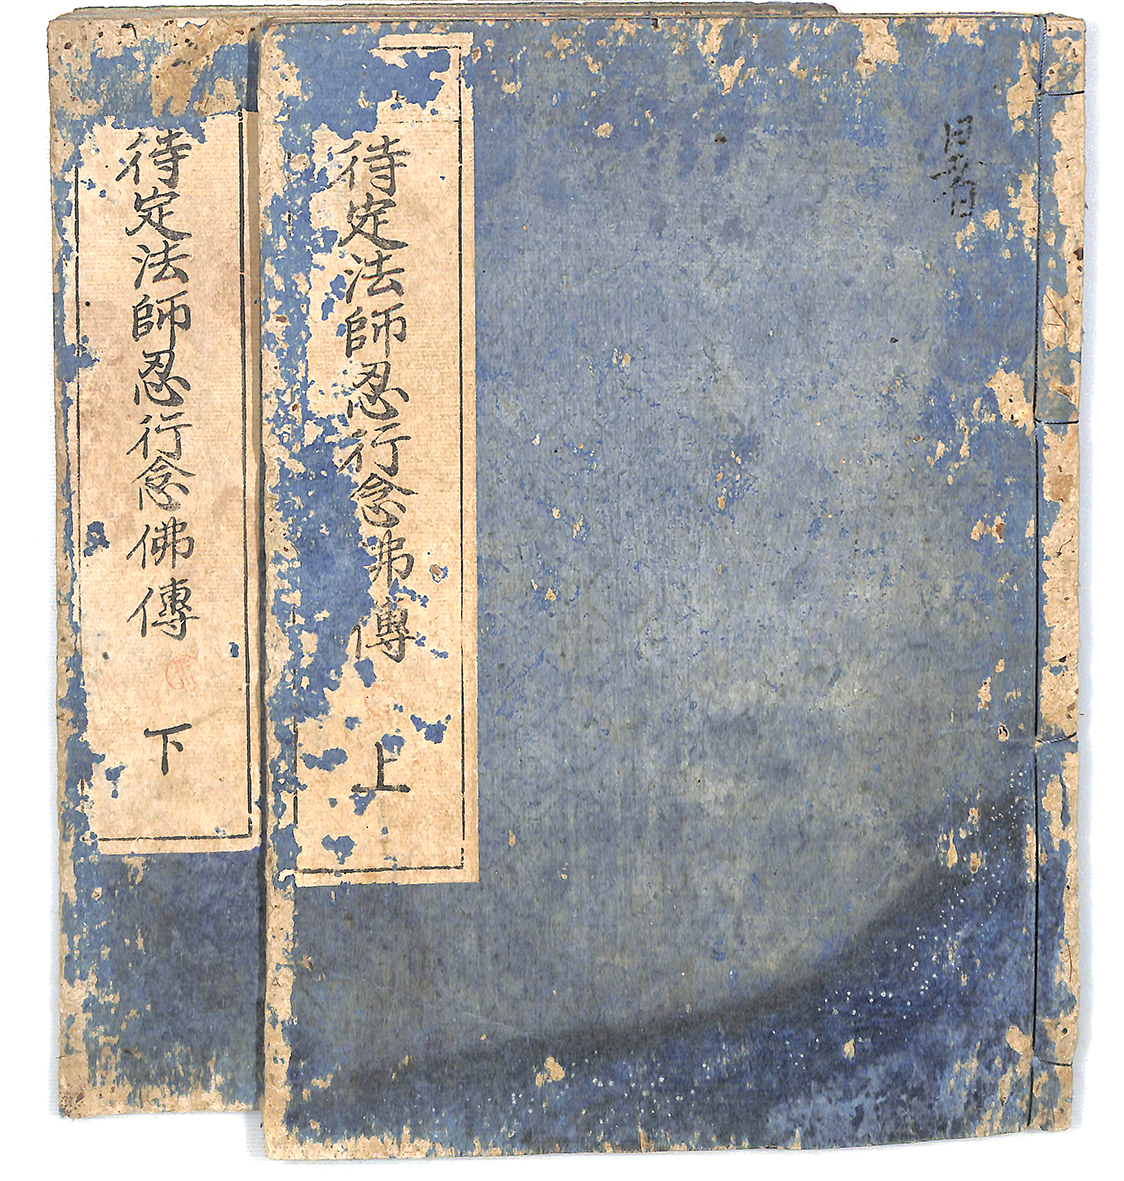 待定法師忍行念佛傳 上
待定法師忍行念佛傳 下